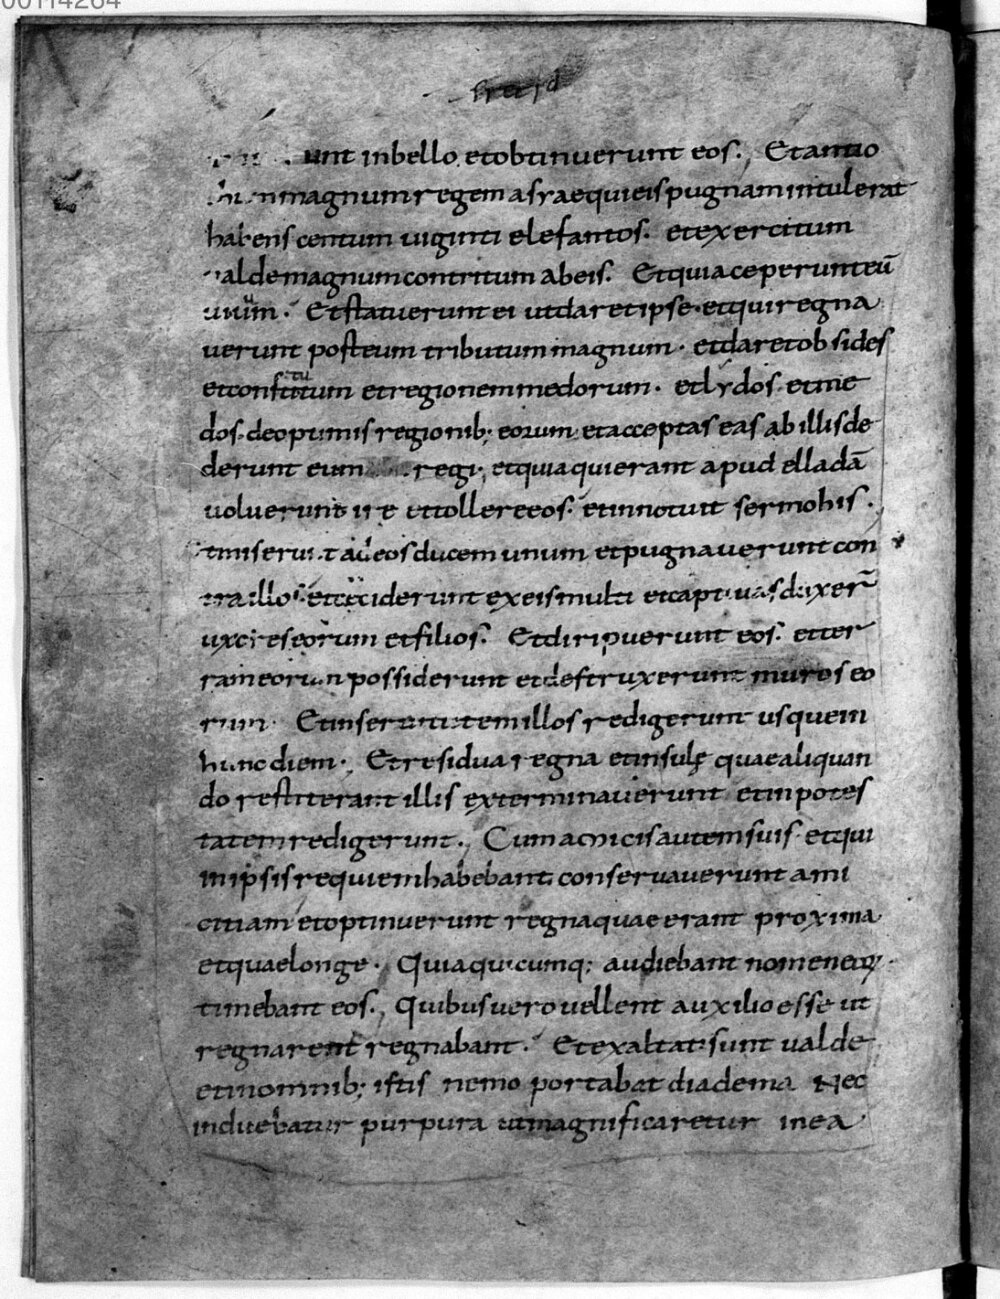 00114264
unt inbello etobtinuerunt eos. Etantio
magnum regem asyae quieis pugnam intulerat
habens centum uiginti elefantos. etexercitum
ualde magnum contritum abeis. Etquia ceperunt eū
uiuum. Etstatuerunt ei utdaret ipse etqui regna
uerunt posteum tributum magnum. etdaret obsides
etconstitutum etregionem medorum. etlydos etme
dos deoptimis regionib; eorum etacceptas eas abillis de
derunt eum regi. etquia quierant apud elladā
uoluerunt ire ettollere eos. etinnotuit sermo his.
etmiserunt adeos ducem unum etpugnauerunt con
tra illos etceciderunt exeis multi etcaptiuas duxer̄
uxores eorum etfilios. Etdiripuerunt eos. etter
ram eorum possiderunt etdestruxerunt muros eo
rum. Etinseruitutem illos redigerunt usque in
hunc diem. Etresidua regna etinsulę quae aliquan
do restiterant illis exterminauerunt etinpotes
tatem redigerunt. Cum amicis autem suis etqui
inipsis requiem habebant conseruauerunt ami
citiam etoptinuerunt regna quae erant proxima
etquae longe. Quia quicumq; audiebant nomen eoꝝ.
timebant eos. Quibus uero uellent auxilio esse ut
regnarent regnabant. Etexaltati sunt ualde
etinomnib; istis nemo portabat diadema Nec
induebatur purpura utmagnificaretur inea.